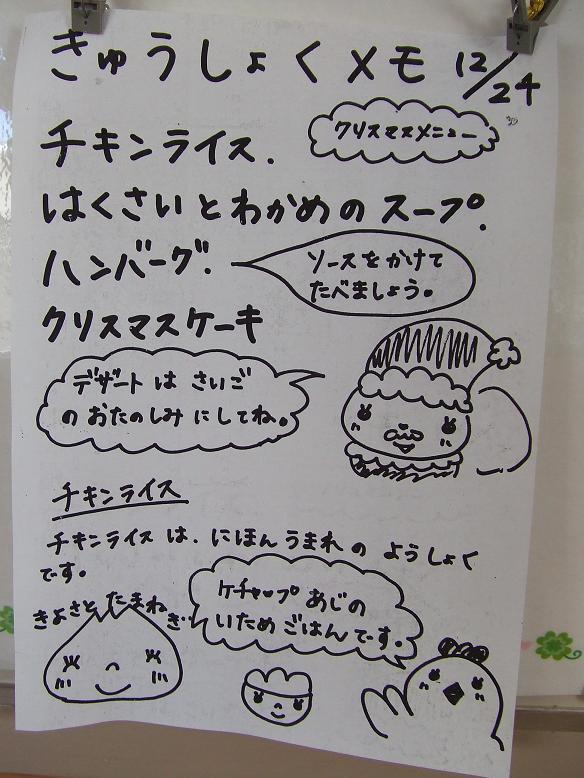 きゅうしょくメモ 12/24
クリスマスメニュー
チキンライス.
はくさいとわかめのスープ.
ハンバーグ.
ソースをかけて
たべましょう。
クリスマスケーキ
デザートは さいご
の おたのしみ にしてね。
チキンライス
チキンライスは、にほん うまれ の ようしょく
です。
きよさと たまねぎ
ケチャップ あじの
いため ごはん です。